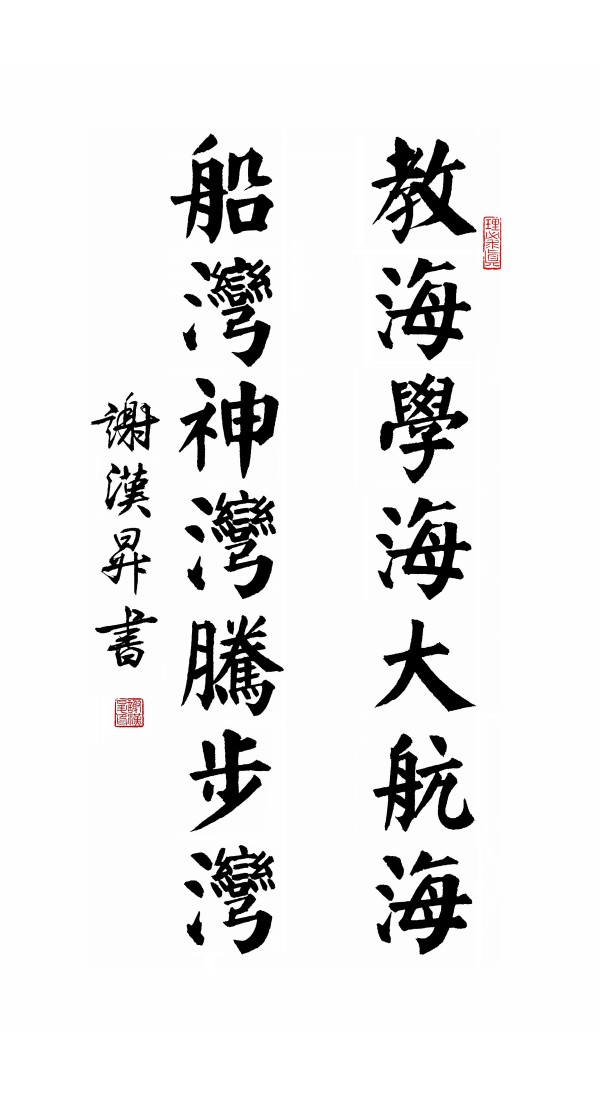 教海學海大航海
船灣神灣騰步灣
謝漢昇書